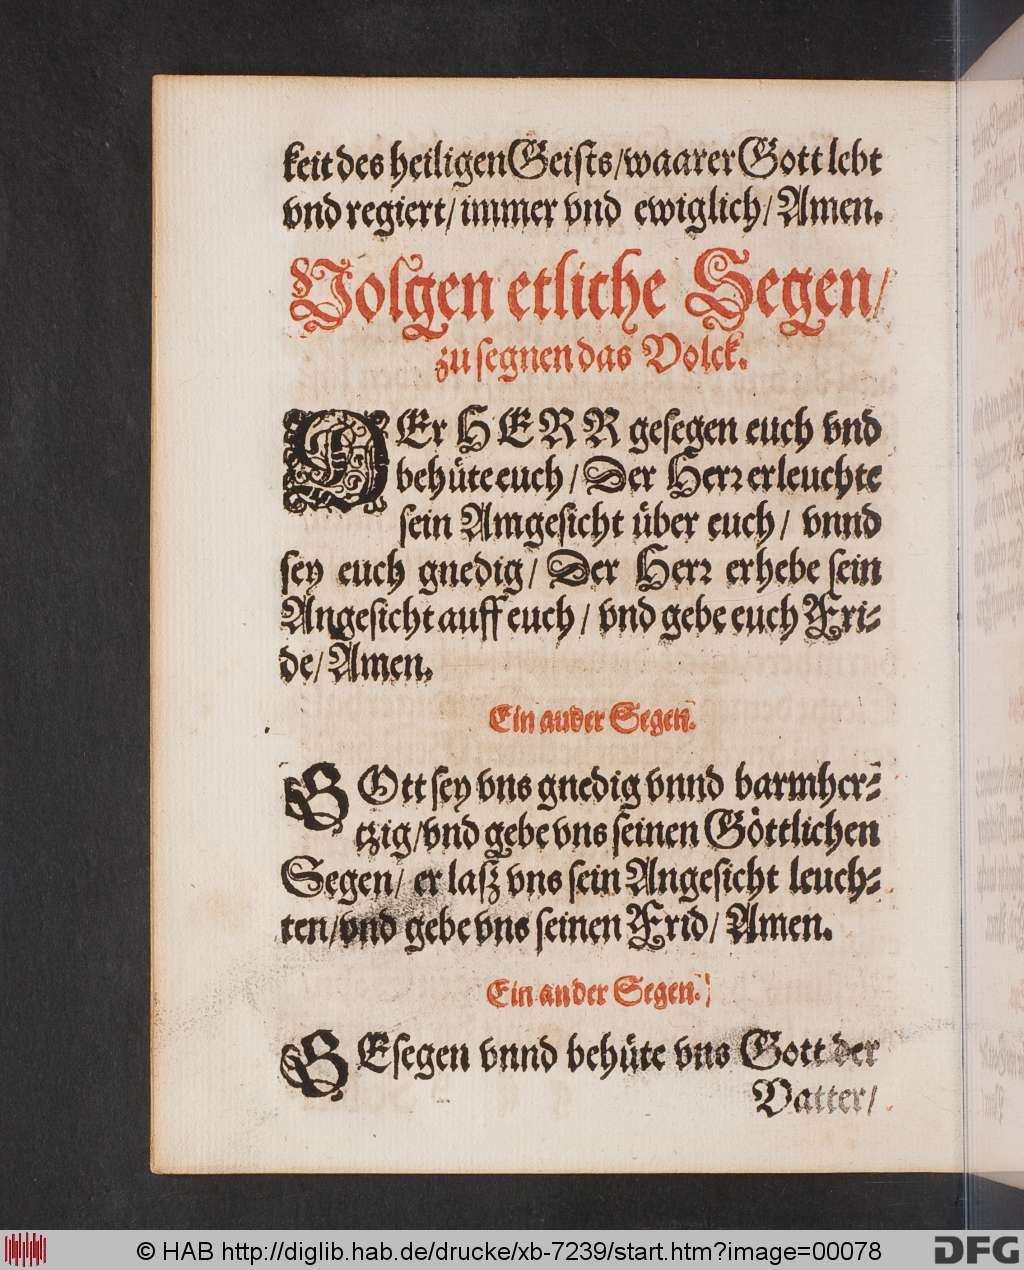 keit des heiligen Geists/waarer Gott lebt
vnd regiert/ immer vnd ewiglich/ Amen.
Volgen etliche Segen/
zu segnen das Volck.
DEr HERR gesegen euch vnd
behüte euch/ Der Herr erleuchte
sein Amgesicht über euch/ vnnd
sey euch gnedig/ Der Herr erhebe sein
Angesicht auff euch/ vnd gebe euch Fri-
de/ Amen.
Ein ander Segen.
GOtt sey vns gnedig vnnd barmher-
tzig/vnd gebe vns seinen Göttlichen
Segen/ er lasz vns sein Angesicht leuch-
ten/vnd gebe vns seinen Frid/ Amen.
Ein ander Segen.
GEsegen vnnd behüte vns Gott der
Vatter/
© HAB http://diglib.hab.de/drucke/xb-7239/start.htm?image=00078
DFG